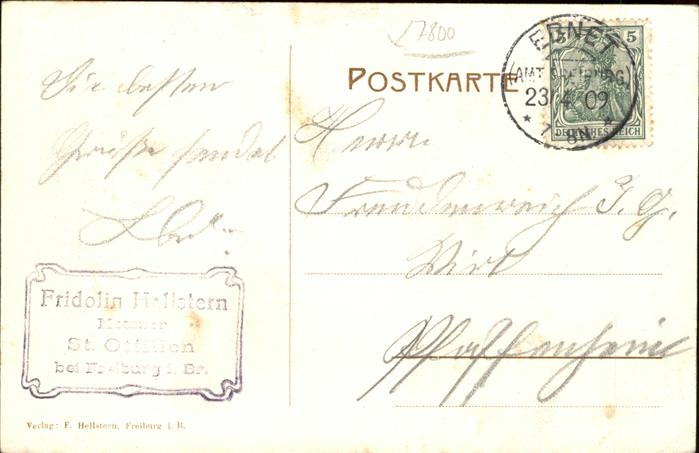 17800
POSTKARTE
EBNET
(AMT FREIBURG)
23.4.09
7-8N
5
DEUTSCHES REICH
Die besten
Grüße sendet
Herrn
Freudenreich J. G.
Wirt
Pfaffenheim
Fridolin Hellstern
Messner
St. Ottilien
bei Freiburg i. Br.
Verlag: F. Hellstern, Freiburg i. B.